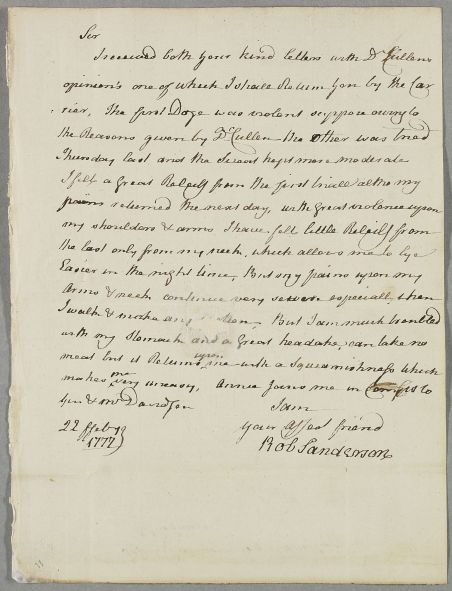 Sir
I received both your kind letters with Dr Cullens
opinion's one of which I shall Return you by the Car
rier, The first Doze was violent I suppose owing to
the Reasons given by Dr Cullen the other was tried
Thursday last and the Sweat kept more moderate
I felt a Great Releife from the first triall altho my
pains returned the next day, with Great violence upon
my shoulders & arms I have felt little Releife from
the last only from my neck, which allows me to lye
Easier in the night time, But my pains upon my
Arms & neck continue very severe especially when
I walk & make any motion, But I am much troubled
with my Stomach and a Great headake, can take no
meat but it Returns upon me with a Squeamishness which
makes me very uneasy, Annie Joins me in to
you & Mr Davidson
I am
22 ffebry
1777
your affect friend
Rob Sanderson